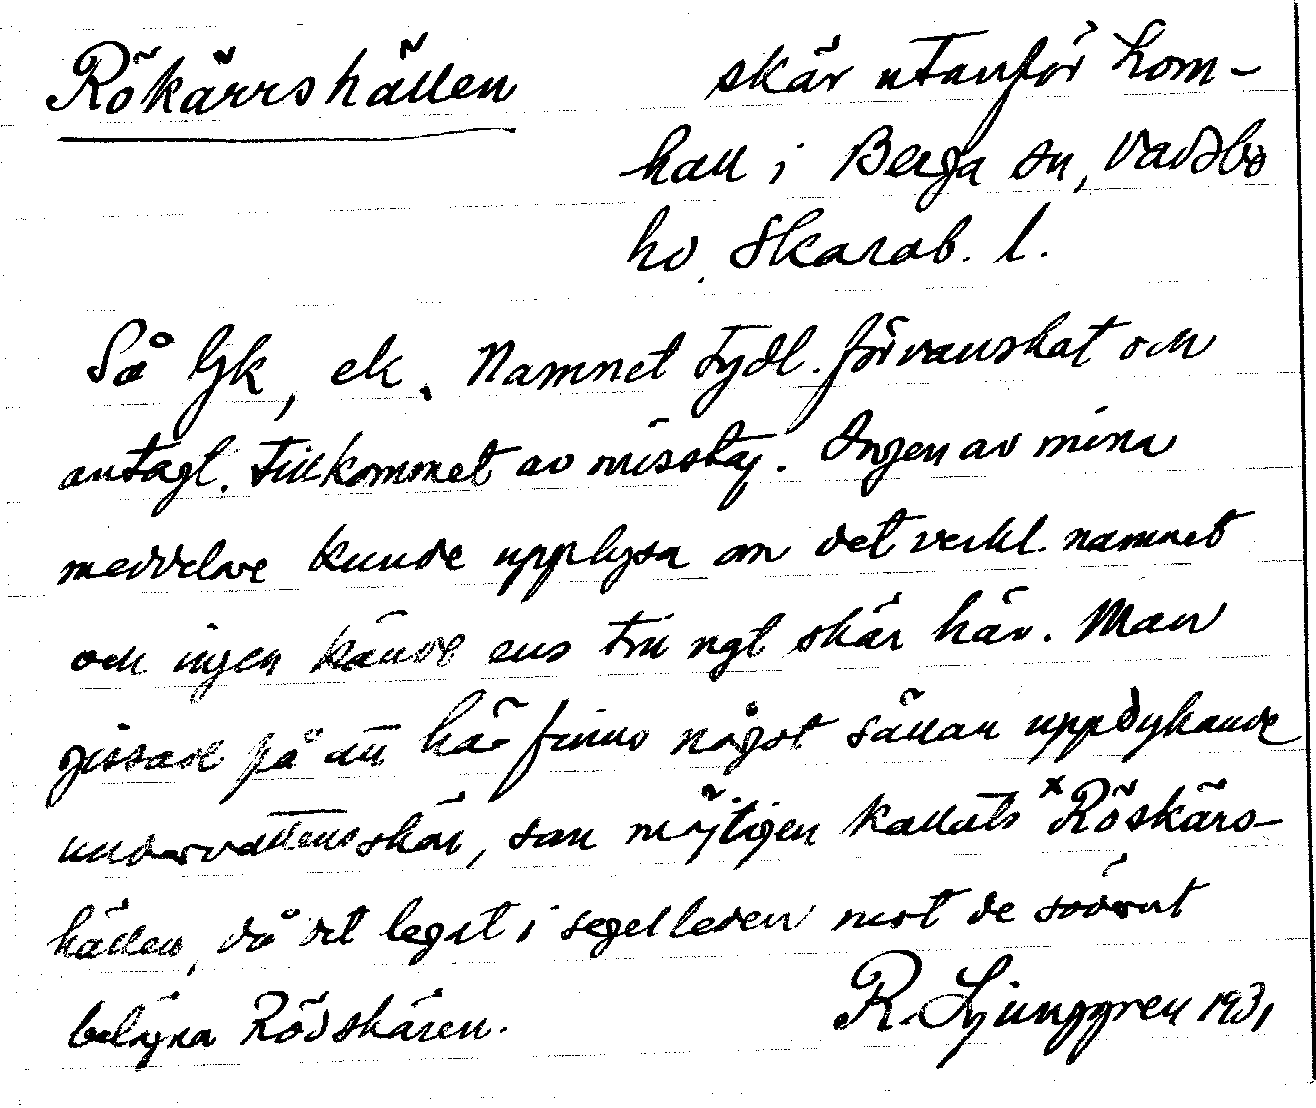 Rökärrshällen
skär utanför Lom-
hall i Berga sn, Vadsbo
hd. Skarab. l.
Så Gk, ek. Namnet tydl. förvanskat och
antagl. tillkommet av misstag. Ingen av mina
meddelare kunde upplysa om det verkl. namnet
och ingen kände ens till ngt skär här. Man
gissade på att här finns något sällan uppdykande
undervattensskär, som möjligen kallats *Röskärs-
hällen, då det legat i segelleden mot de söderut
belägna Rödskären.
R. Ljunggren 1931